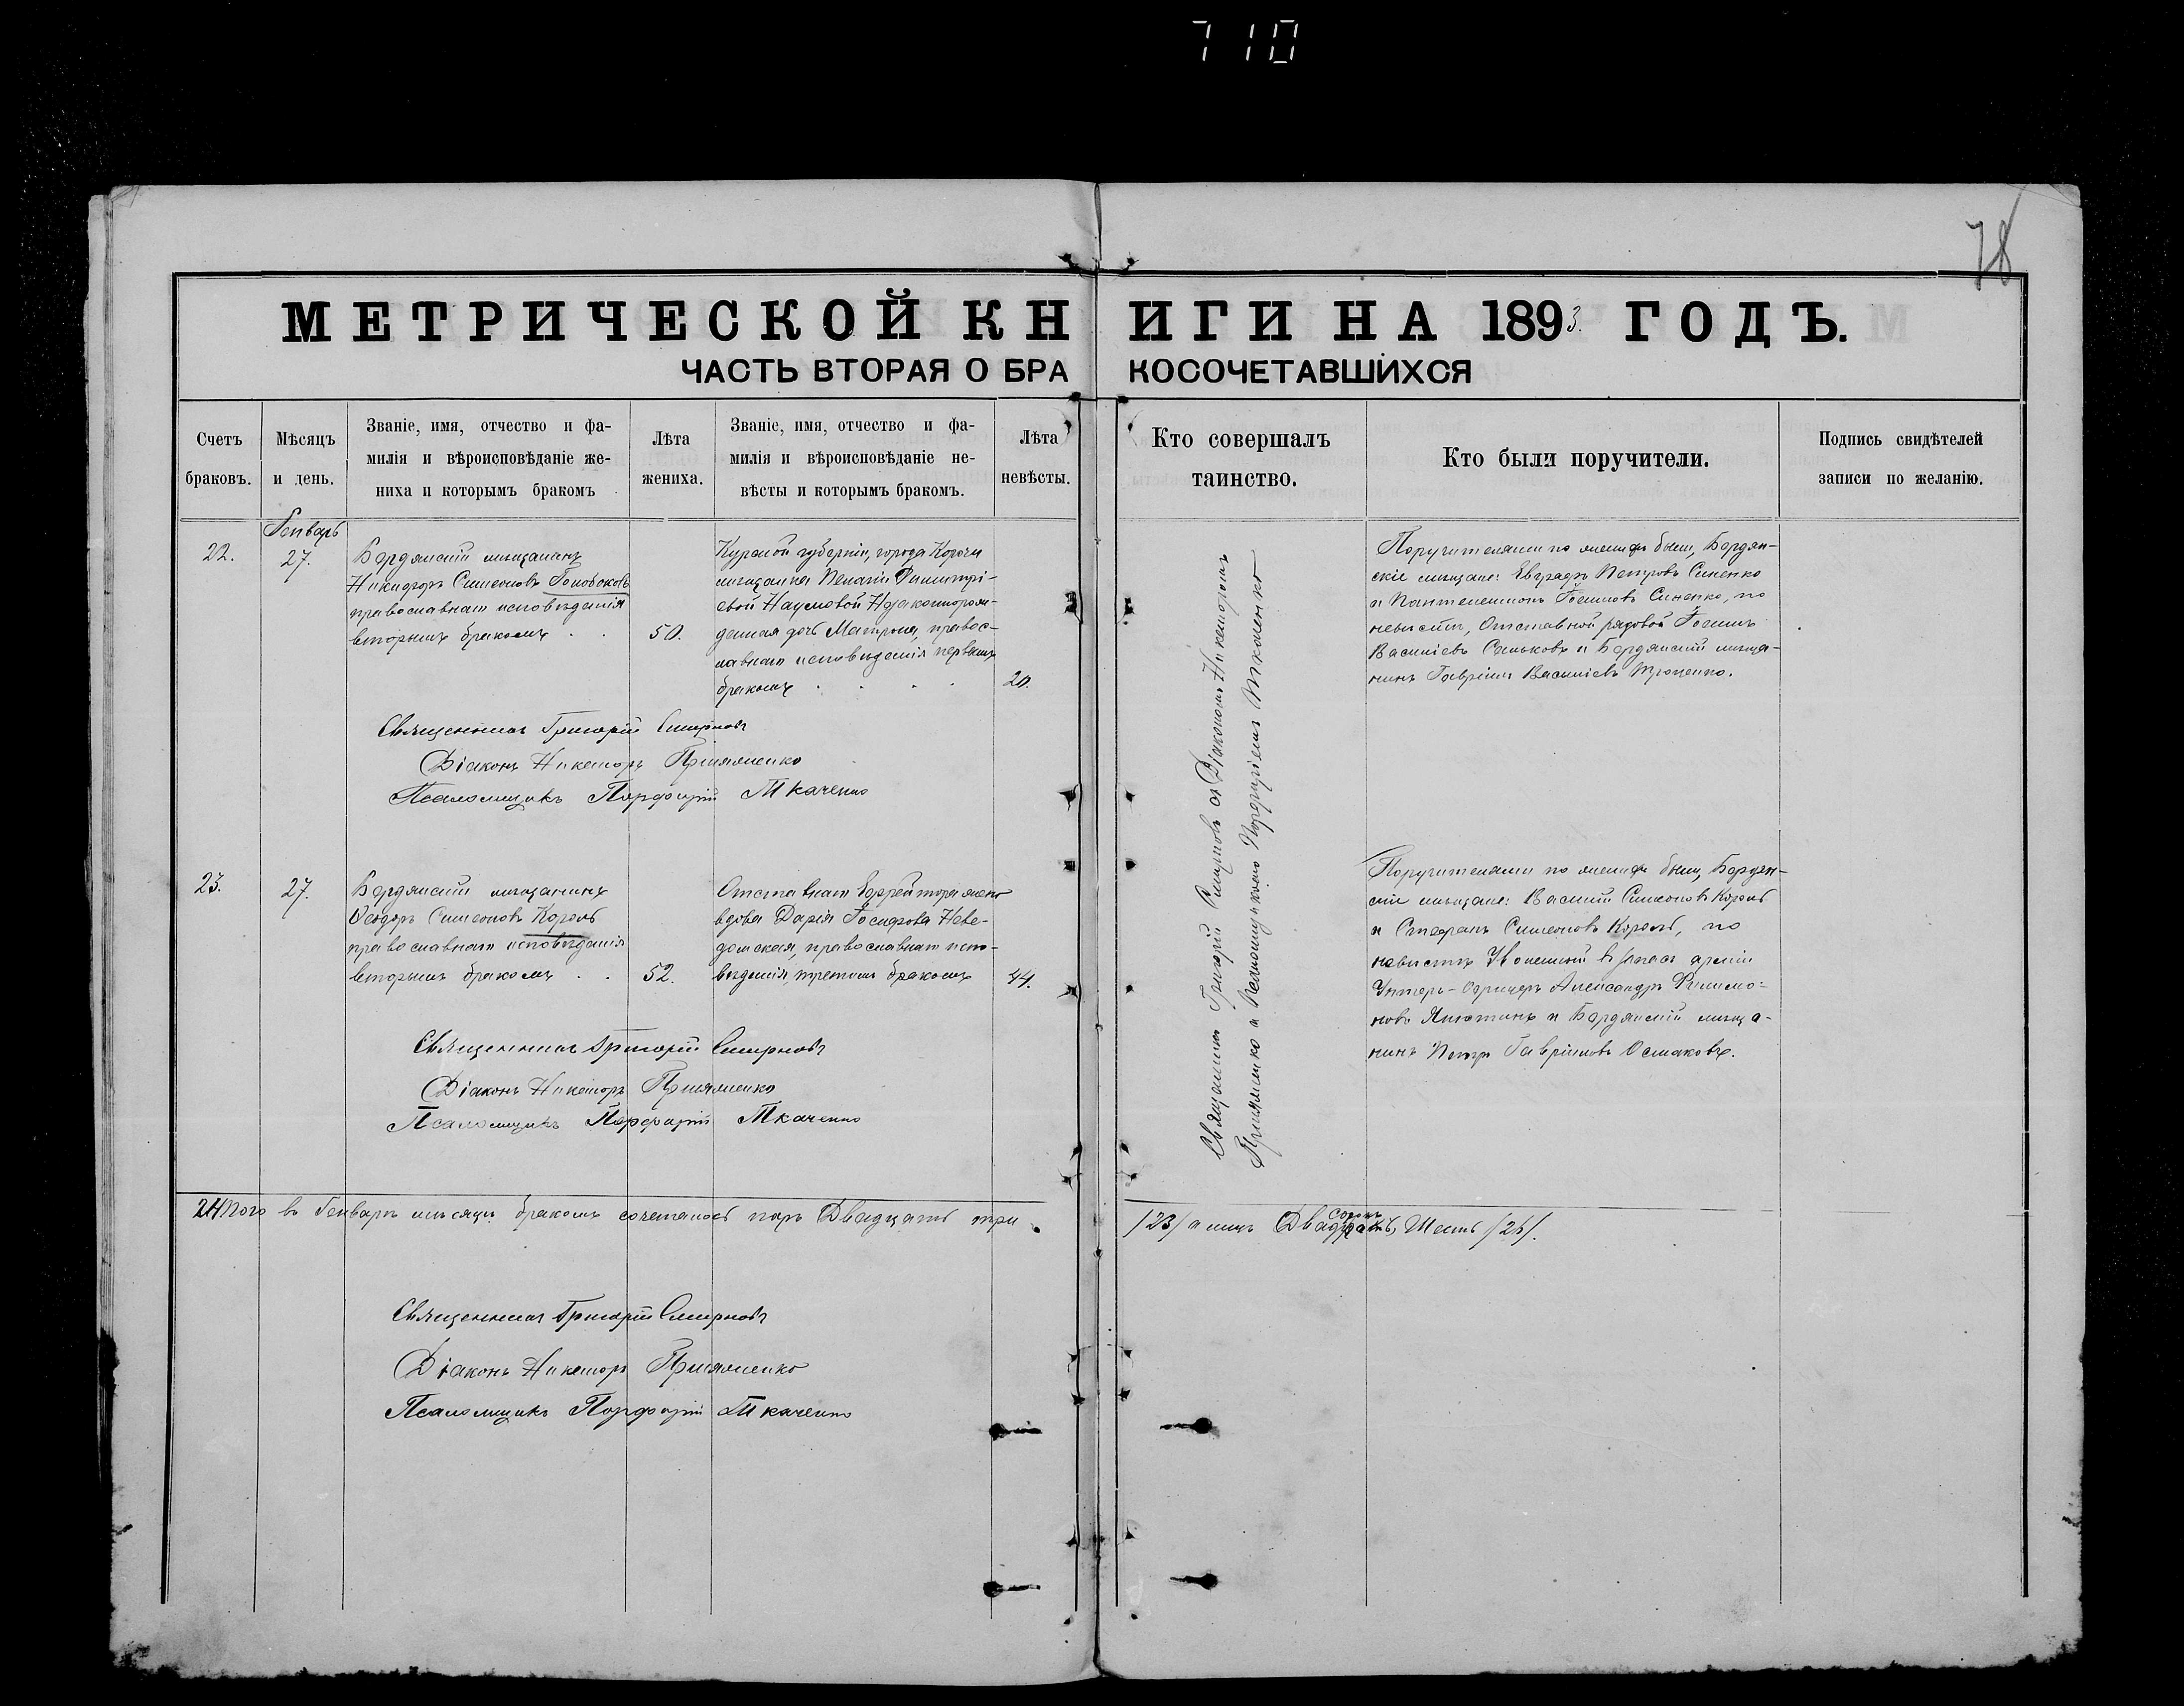 710
78
МЕТРИЧЕСКОЙ КНИГИ НА 1893. ГОДЪ.
ЧАСТЬ ВТОРАЯ О БРАКОСОЧЕТАВШИХСЯ
Счетъ браковъ.
Мѣсяцъ и день.
Званіе, имя, отчество и фа-
милія и вѣроисповѣданіе же-
ниха и которымъ бракомъ
Лѣта жениха.
Званіе, имя, отчество и фа-
милія и вѣроисповѣданіе не-
вѣсты и которымъ бракомъ.
Лѣта невѣсты.
Кто совершалъ таинство.
Кто были поручители.
Подпись свидѣтелей
записи по желанію.
Генварь
22.
27.
Бердянскій мѣщанинъ
Никифоръ Симеоновъ
православнаго исповѣданія
вторымъ бракомъ
50.
Курской губерніи, города Корочи
мѣщанки Пелагіи Димитрі-
евой Наумовой незаконнорож-
денная дочь Матрона, правос-
лавнаго исповѣданія первымъ
бракомъ
20.
Священникъ Григорій Смирновъ съ Діакономъ Никаноромъ
Пріяменко и Псаломщикомъ Порфиріемъ Ткаченко
Поручителями по женихѣ были, Бердян-
скіе мѣщане: Евграфъ Петровъ Синенко
и Пантелеимонъ Іоанновъ Синенко, по
невѣстѣ, Отставной рядовой Іоаннъ
Василіевъ Сеньковъ и Бердянскій мѣща-
нинъ Гавріилъ Василіевъ Троценко.
Священникъ Григорій Смирновъ
Діаконъ Никаноръ Пріяменко
Псаломщикъ Порфирій Ткаченко
23.
27.
Бердянскій мѣщанинъ
Ѳеодоръ Симеоновъ Король
православнаго исповѣданія
вторымъ бракомъ
52.
Отставнаго Ефрейтора жена
вдова Дарія Іосифова Неве-
домская, православнаго испо-
вѣданія, третьимъ бракомъ
44.
Поручителями по женихѣ были, Бердян-
скіе мѣщане: Василій Симеоновъ Король
и Стефанъ Симеоновъ Король, по
невѣстѣ Уволенный въ запасъ арміи
Унтеръ-Офицеръ Александръ Филимо-
новъ и Бердянскій мѣща-
нинъ Петръ Гавріиловъ Осмаковъ.
Священникъ Григорій Смирновъ
Діаконъ Никаноръ Пріяменко
Псаломщикъ Порфирій Ткаченко
Итого въ Генварѣ мѣсяцѣ бракомъ сочеталось паръ Двадцать три /23/ а лицъ Двадцать Сорокъ Шесть
Священникъ Григорій Смирновъ
Діаконъ Никаноръ Пріяменко
Псаломщикъ Порфирій Ткаченко